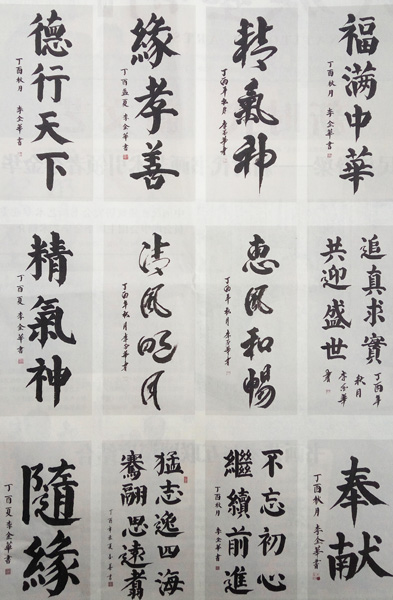 福满中華
丁酉秋月 李金華書
精氣神
丁酉年秋月 李金華書
緣孝善
丁酉孟夏 李金華書
德行天下
丁酉秋月 李金華書
追真求實
共迎盛世
丁酉年
秋月
李金華
書
惠风和暢
丁酉年秋月 李金華書
清风明月
丁酉年秋月 李金華書
精氣神
丁酉夏 李金華書
奉献
丁酉秋月 李金華書
不忘初心
繼續前進
丁酉秋月 李金華書
猛志逸四海
騫翮思遠翥
隨緣
丁酉夏 李金華書